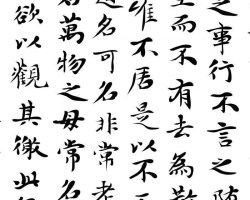 之事行不言之
而不有去為
唯不居是以不
名可名非常
名萬物之母常名
欲以觀其徼此